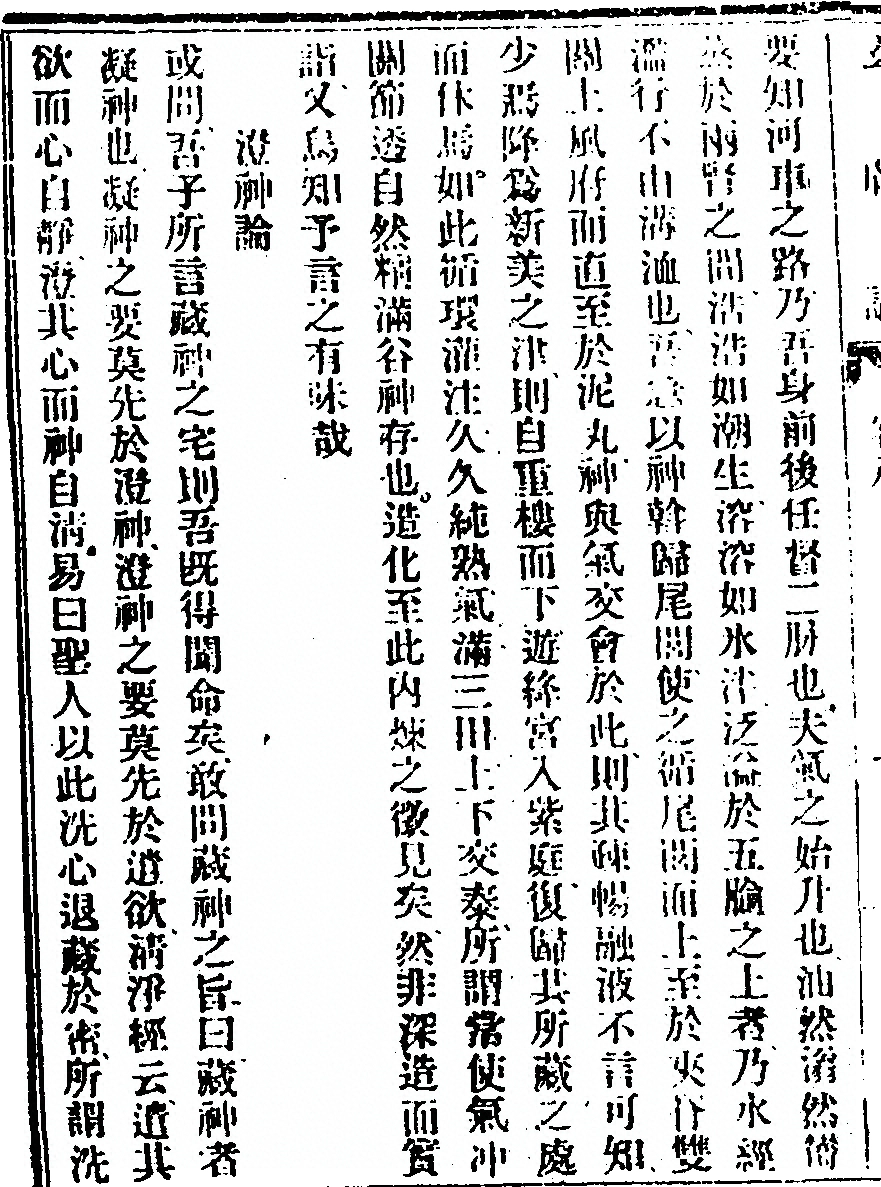 要知河車之路乃吾身前後任督二脉也夫氣之始升也油然滃然
蒸於兩腎之間浩浩如潮生溶溶如氷泮泛溢於五臟之上者乃水經
濫行不由溝洫也吾急以神斡歸尾閭使之循尾閭而上至於夾脊雙
關上風府而直至於泥丸神與氣交會於此則其疎暢融液不言可知
少焉降爲新美之津則自重樓而下遊絳宮入紫庭復歸其所藏之處
而休焉如此循環灌注久久純熟氣滿三田上下交泰所謂常使氣冲
關節透自然精滿谷神存也造化至此内煉之徵見矣然非深造而實
詣又烏知予言之有味哉
澄神論
或問吾子所言藏神之宅則吾既得聞命矣敢問藏神之旨曰藏神者
凝神也凝神之要莫先於澄神澄神之要莫先於遣欲清淨經云遣其
欲而心自靜澄其心而神自清易曰聖人以此洗心退藏於密所謂洗